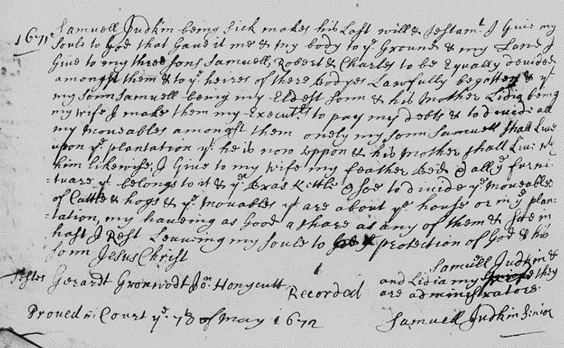 1671 Samuell Judkin being sick makes his Last will & Testamt. I Give my
Soule to God that Gave it me & my body to ye Ground & my Land I
Give to my three sons Samuell, Robert & Charles to be Equally devided
amongst them & to ye heires of there Bodyes Lawfully begotten & ye
my sonn Samuell being my Eldest sonn & his Mother Lidia being
my wife I make them my Execut to pay my debts & to divide all
my moveables amongst them onely my sonn Samuell shall Live
upon ye plantation yt he is now uppon & his Mother shall Live wth
him likewise, I Give to my wife my feather Bed & all ye furni-
tuare yt belongs to it & ye Bras Kittle & soe to divide ye moveables
of Cattle & hogs & ye movables yt are about ye house or my plan-
tation, my haveing as Good a share as any of them & soe in
hast I Rest Leaveing my Soule to ye protection of God & his
sonn Jesus Christ
Samuell Judkin &
Testes Gerardt Jno. Honycutt and Lidia my they
Recorded are administrators
Proved in Court ye 7th of May 1672 Samuell Judkin Senior